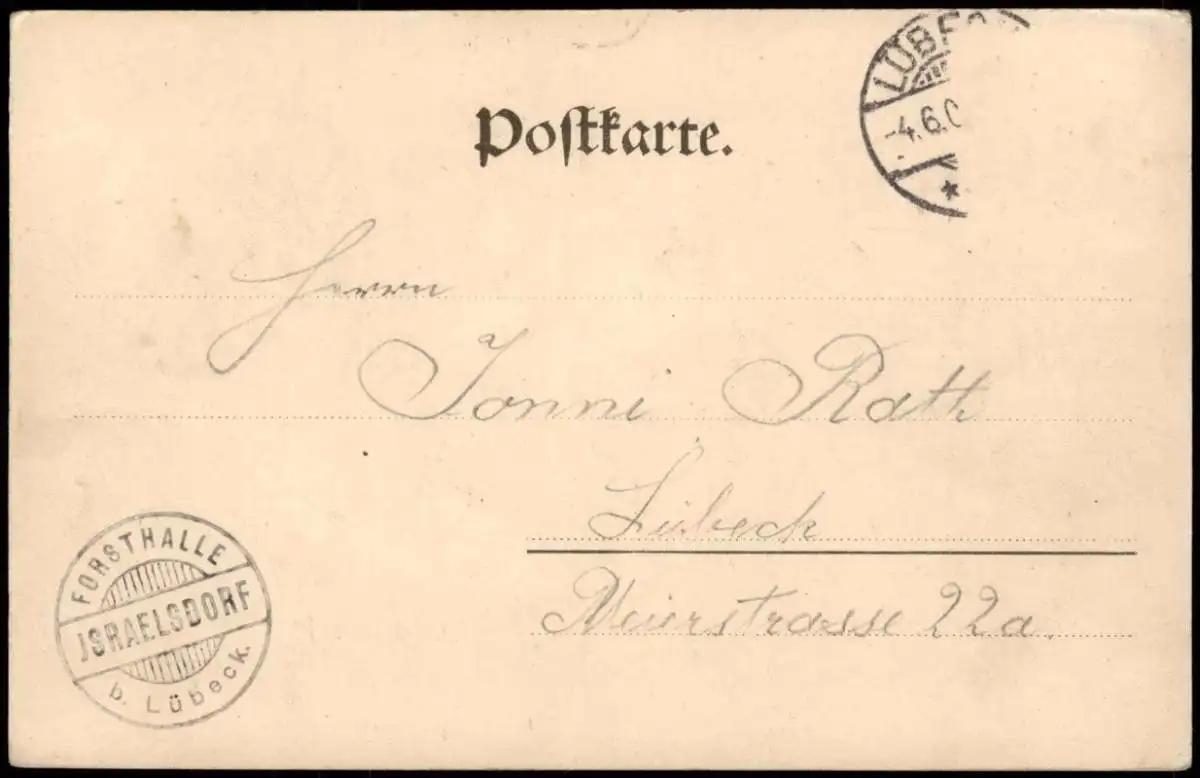 Postkarte.
LÜBEC
-4.6.0
Herrn
Jonni Rath
Lübeck
Meierstrasse 22a.
FORSTHALLE
JSRAELSDORF
b. Lübeck.